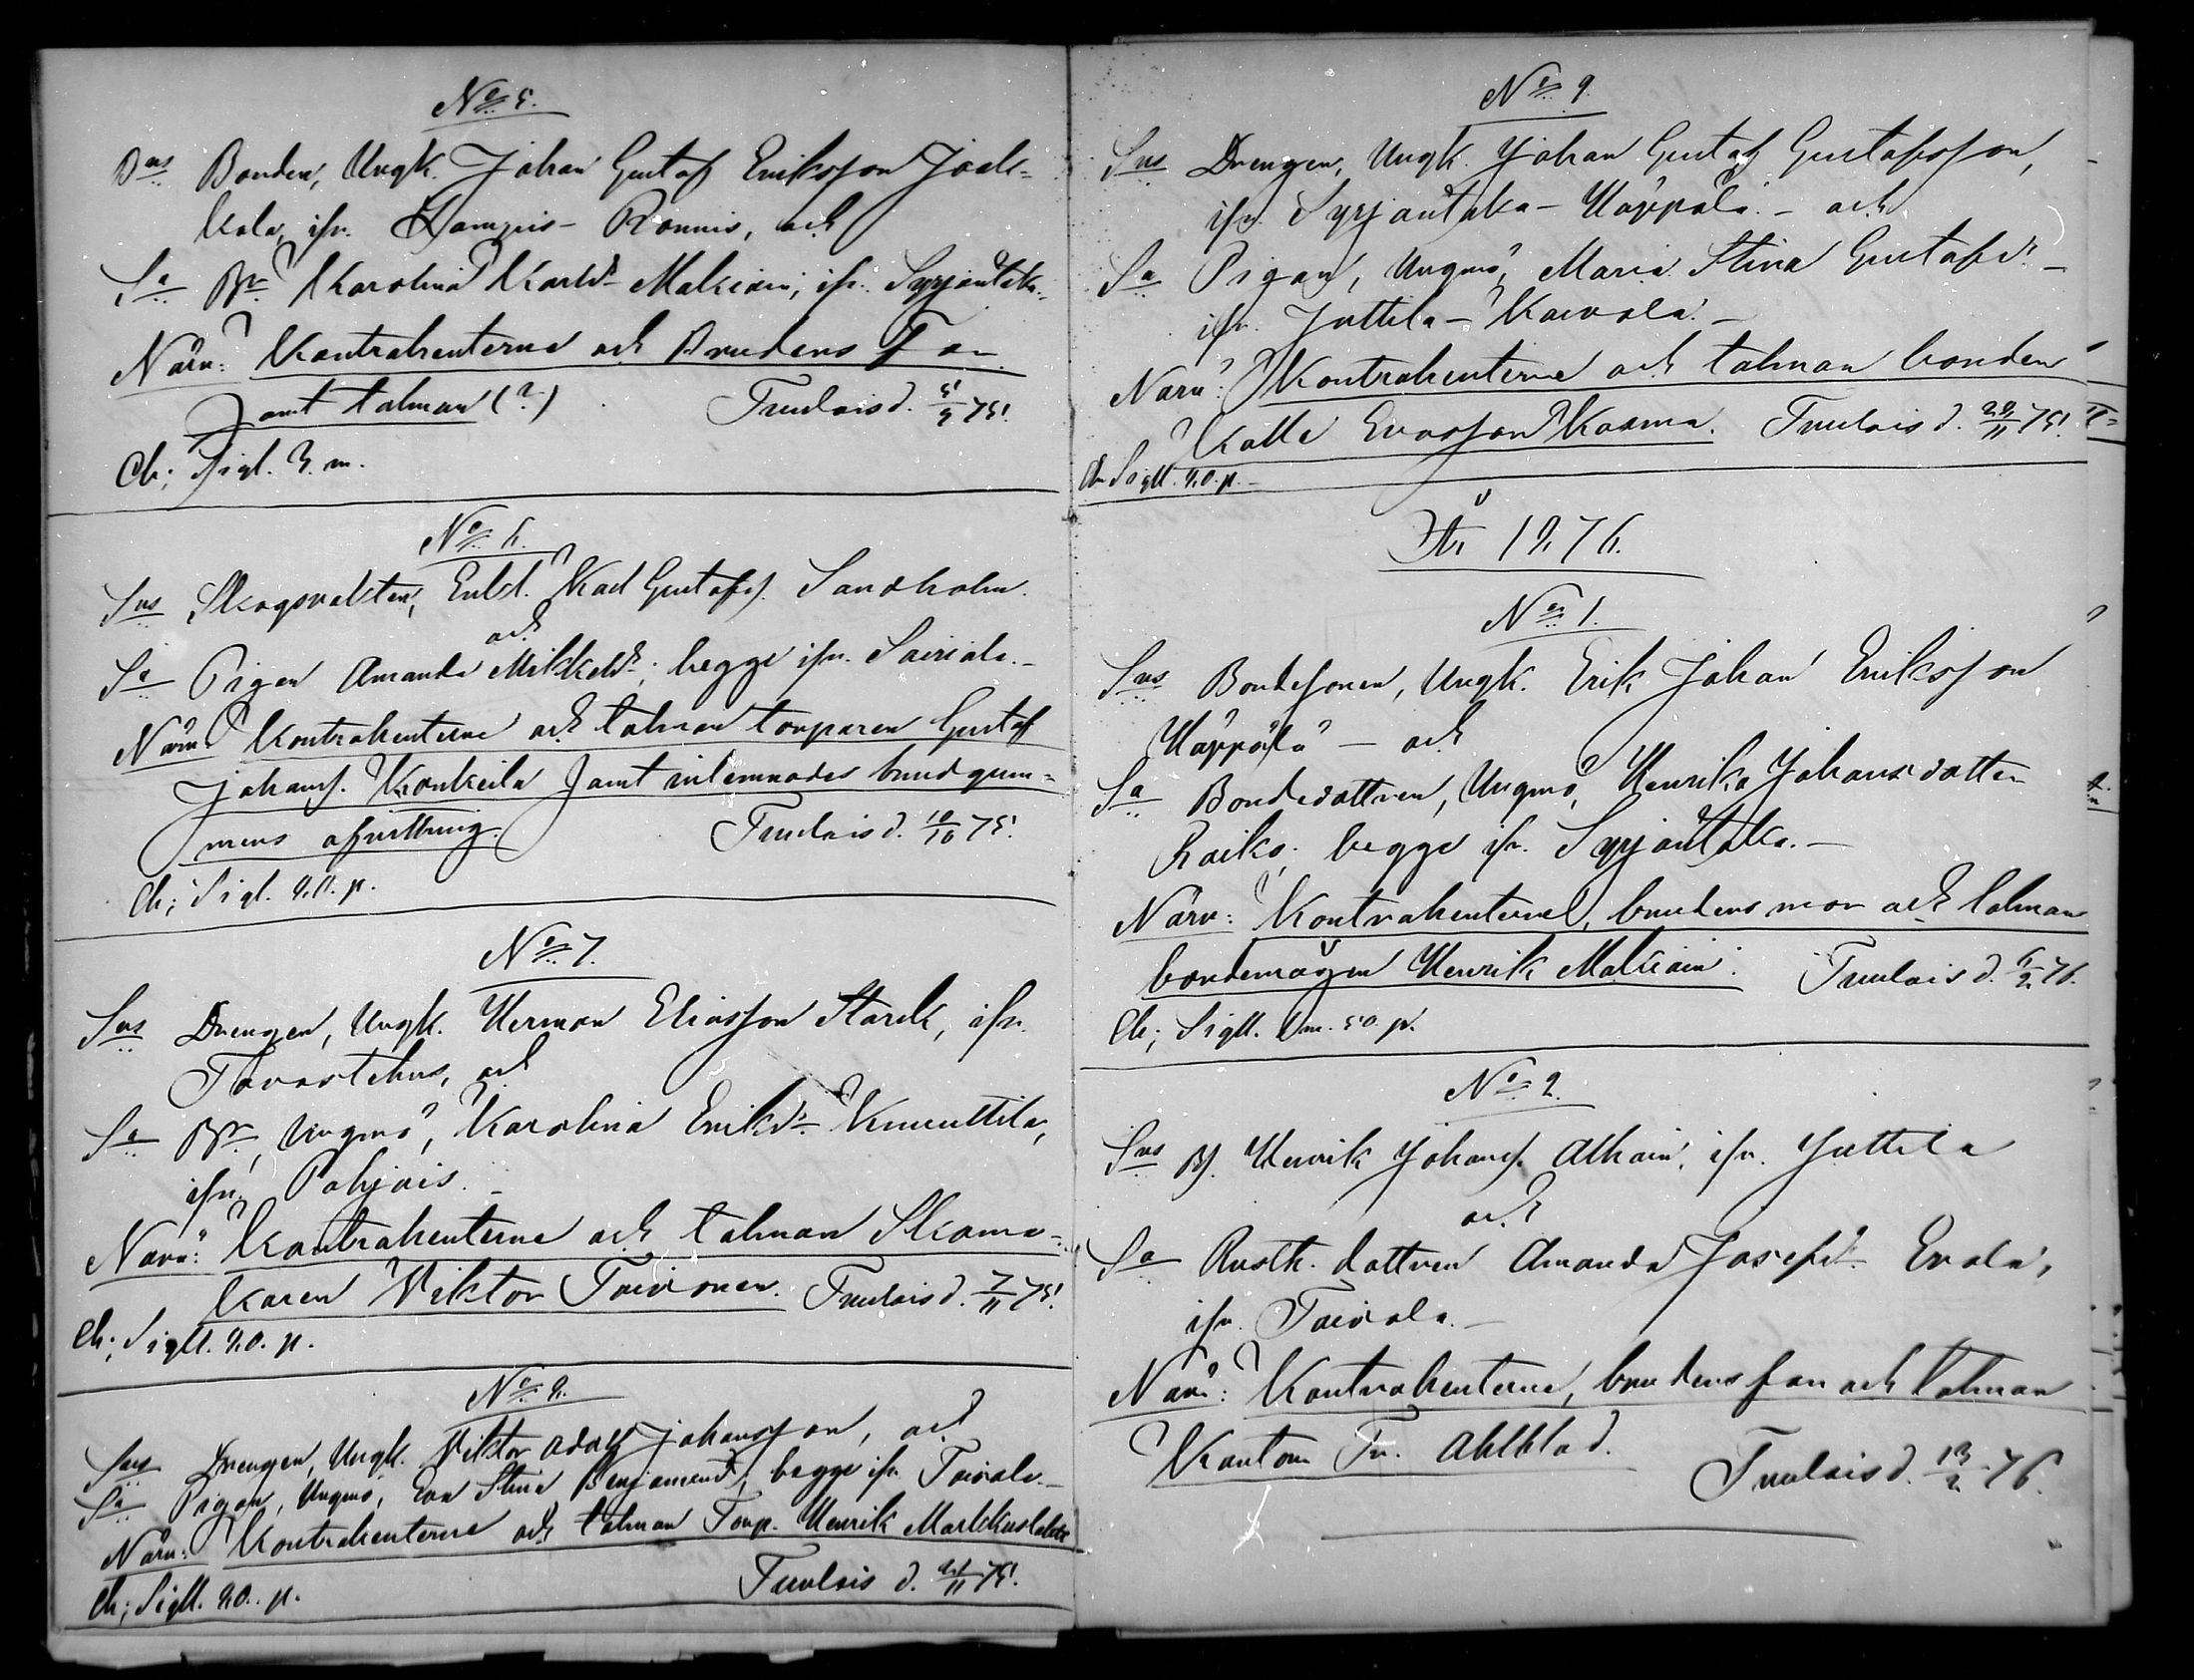 No 5.
Bns Bonden, Ungk. Johan Gustaf Eriksson Jaak-
kola, ifr. Hongvis-Ronnis, och
Sa Br Karolina Karlsdr Malviain, ifr. Syrjäntaka.
Närv: Kontrahenterne och Brudens Far
samt talman (?) Tuulois d. 5/9 75.
Ch; Sigl. 3. m.
No 6.
Sns Skogsvakten, Enkl. Karl Gustafs. Sandholm.
och
Sa Pigan Amanda Mikkelsdr; begge ifr. Sairiala.
Närv: Kontrahenterne och talman torparen Gustaf
Johans. Konkeila samt inlemnades brudgum-
mens afvittring. Tuulois d. 10/10 75.
Ch; Sigl. 80. p.
No 7.
Sns Drengen, Ungk. Herman Eliasson Stark, ifr.
Tavastehus, och
Sa Br, Ungmö, Karolina Eriksdr Knuuttila,
ifr. Pohjois.
Närv: Kontrahenterne och talman Skoma-
karen Viktor Toivonen. Tuulois d. 7/11 75.
Ch; Sigll. 80. p.
No 8.
Sns Drengen, Ungk. Viktor Adolf Johansson, och
Sa Pigan, Ungmö, Eva Stina Benjamensdr, begge ifr. Toivala.
Närv: Kontrahenterne och talman Torp. Henrik Markkuslakka
Ch; Sigll. 80. p. Tuulois d. 21/11 75.
No 9.
Sns Drengen, Ungk. Johan Gustaf Gustafsson,
ifr. Syrjäntaka-Uäppälä. - och
Sa Pigan, Ungmö, Maria Stina Gustafsdr -
ifr. Juttila - Kaivola. -
Närv: Kontrahenterne och talman bonden
Kalle Evasson Kaarna. Tuulois d. 28/11 75.
Ch Sigll. 80. p. -
År 1876.
No 1.
Sns Bondesonen, Ungk. Erik Johan Eriksson
Uäppälä - och
Sa Bondedottren, Ungmö, Henrika Johansdotter
Raiko, begge ifr. Syrjäntaka. -
Närv: Kontrahenterne, brudens mor och talman
bondemågen Henrik Malviain. Tuulois d. 6/2 76.
Ch; Sigll. 1 m. 50. p.
No 2.
Sns Bs. Henrik Johans. Alhain, ifr. Juttila
och
Sa Rusth. dottren Amanda Josefsdr Erola,
ifr. Toivola. -
Närv: Kontrahenterne, brudens far och talman
Kantorn Fr. Ahlblad. Tuulois d. 13/2 76.